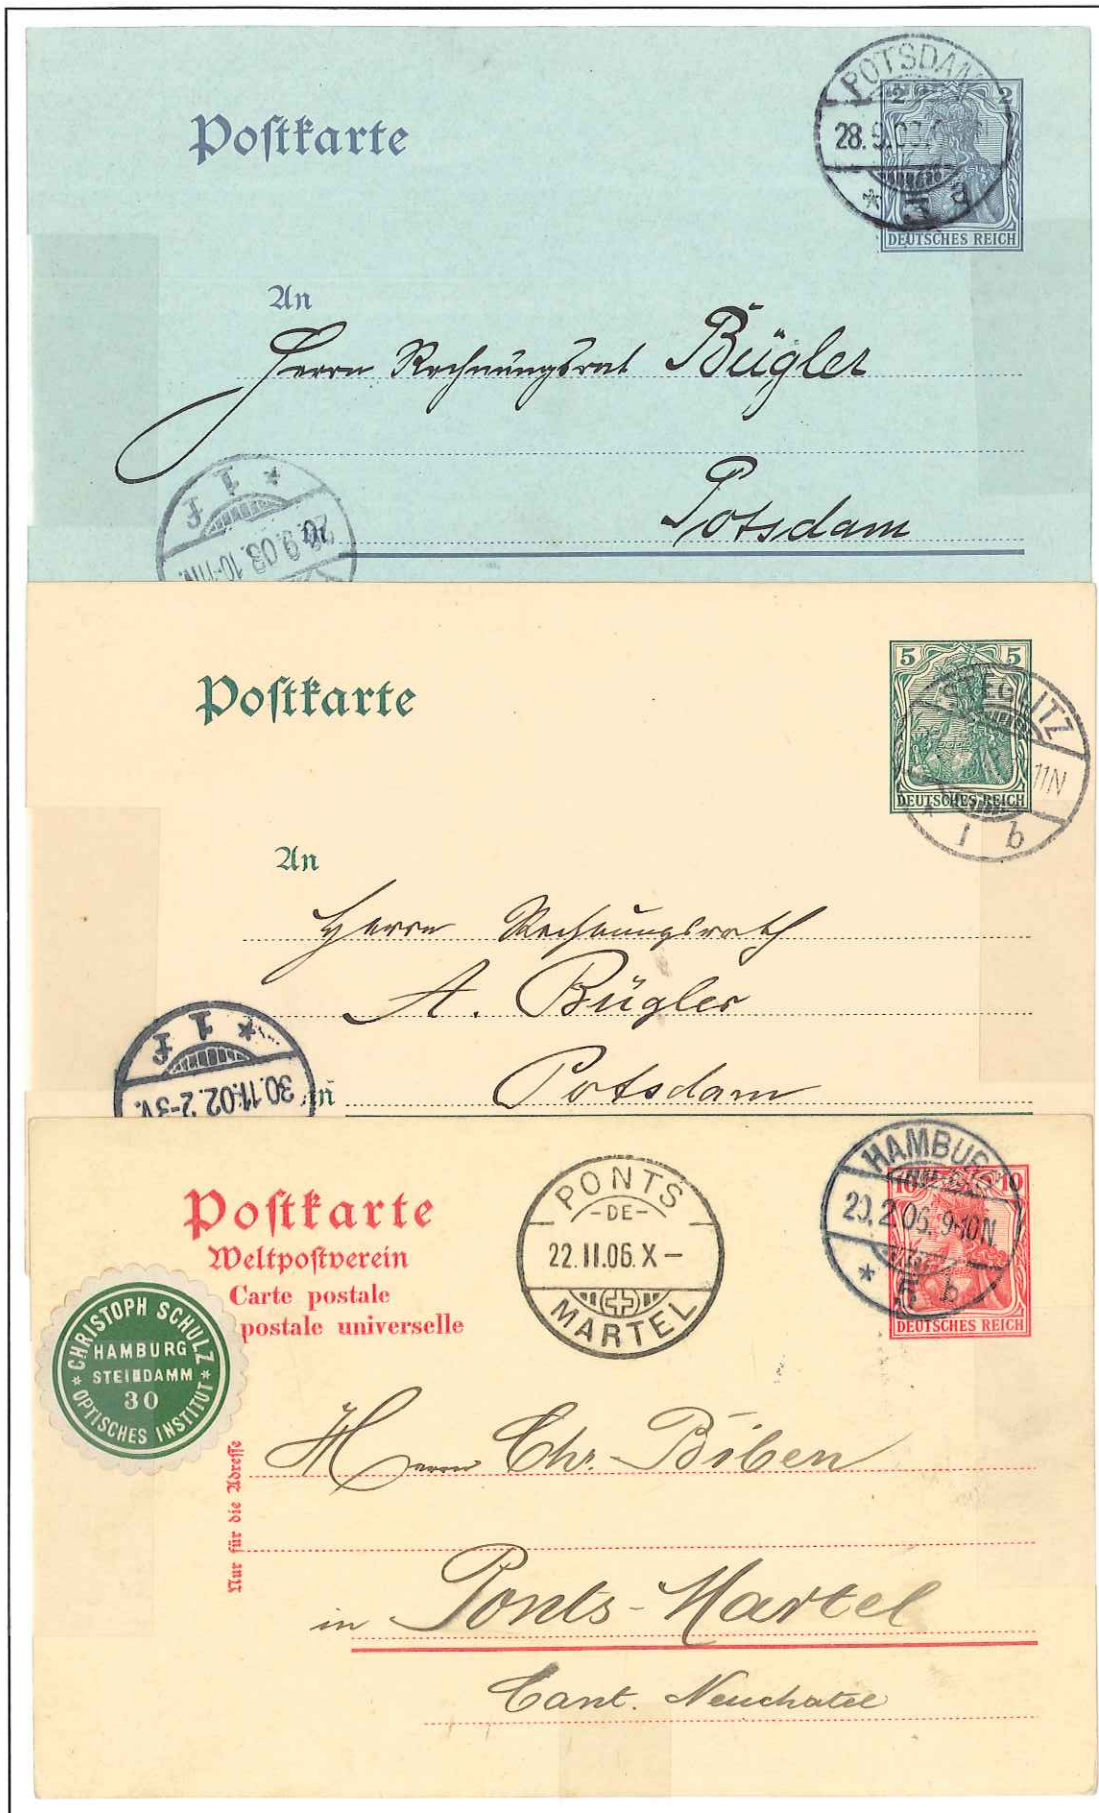 Postkarte
POTSDAM
28.9.03.
* 3 a
2 2
DEUTSCHES REICH
An
Herrn Rechnungsrat Bügler
Potsdam
* 1 f
9.03. 10-11N.
in
Postkarte
5 5
DEUTSCHES REICH
STEGLITZ
11N
* 1 b
An
Herrn Rechnungsrath
A. Bügler
Potsdam
* 1 f
30.11.02. 2-3V.
in
Postkarte
Weltpostverein
Carte postale
postale universelle
PONTS
-DE-
22.II.06.X-
MARTEL
HAMBURG
20.2.06. 9-10N.
* 5 b
10 10
DEUTSCHES REICH
CHRISTOPH SCHULZ
HAMBURG
STEINDAMM
30
* OPTISCHES INSTITUT *
Nur für die Adresse
Herrn Chr. Biben
in Ponts-Martel
Cant. Neuchatel